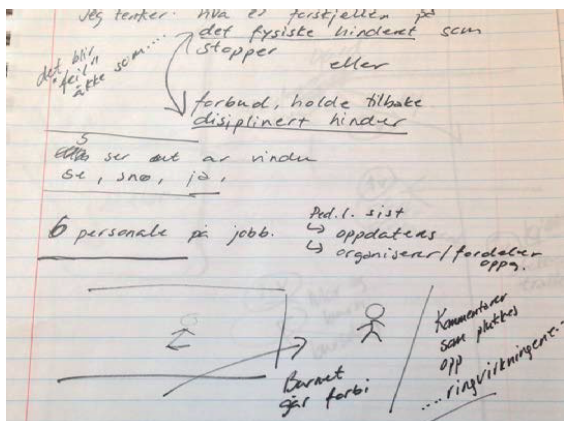 Jeg tenker. Hva er forskjellen på
det fysiske hinderet som
stopper
eller
det blir
"feil"
åkke som....
forbud, holde tilbake
disiplinert hinder
S
ser ut av vindu
se, snø, ja,
6 personale på jobb.
Ped. l. sist
↳ oppdateres
↳ organiserer/fordeler
oppg.
Barnet
går forbi
Kommentarer
som plukkes
opp
.... ringvirkningene...